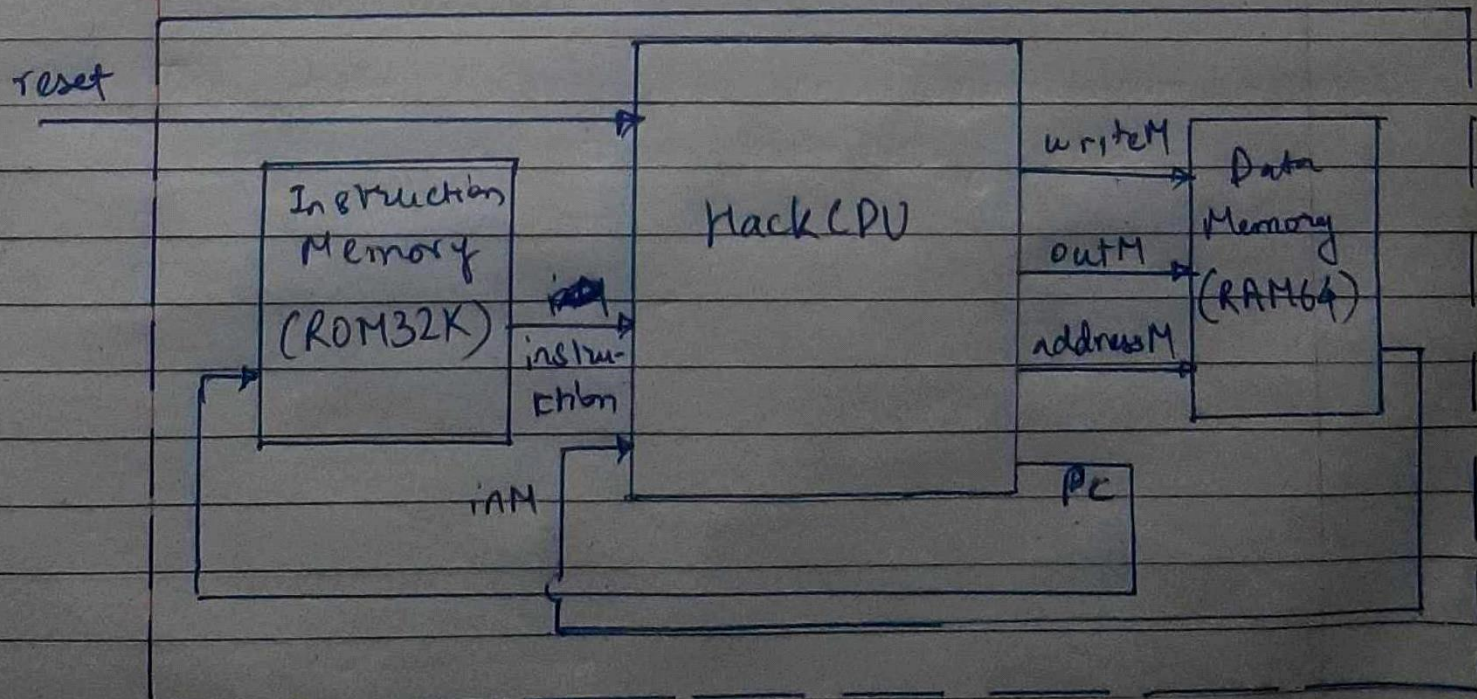 reset
Instruction
Memory
(ROM32K)
instru-
ction
inM
HackCPU
writeM
outM
addressM
Data
Memory
(RAM64)
PC